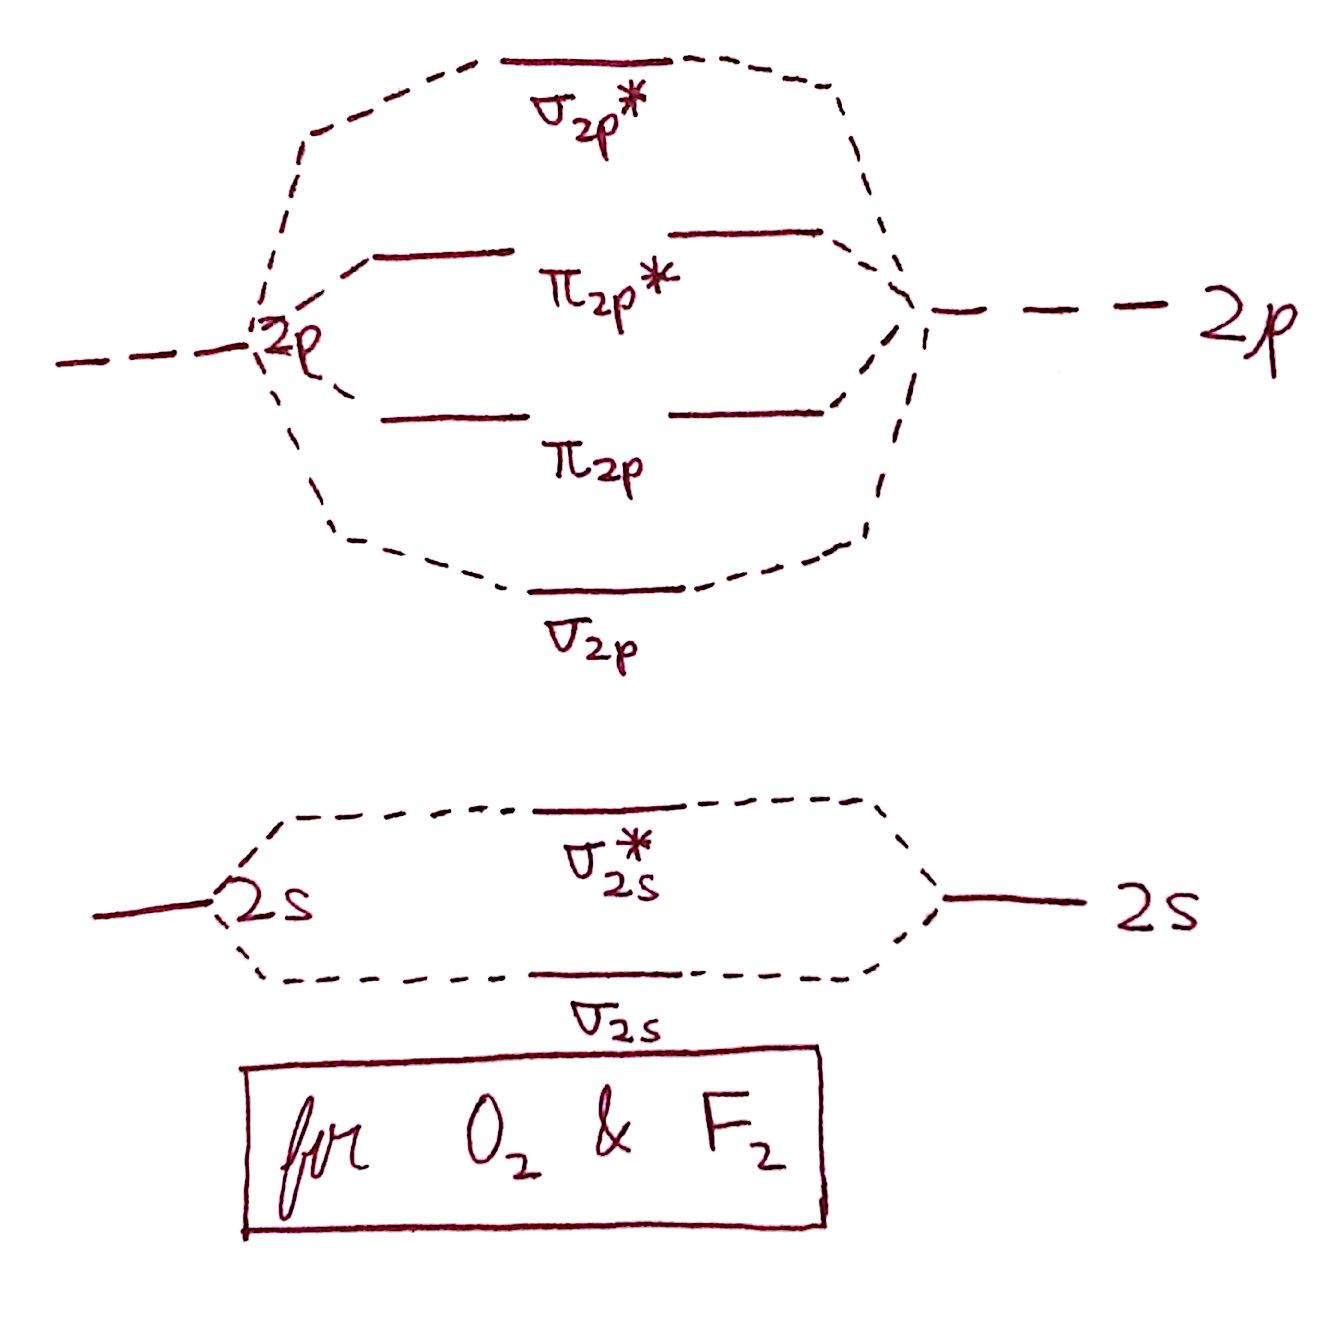 σ2p*
π2p*
2p 2p
π2p
σ2p
σ*2s
2s 2s
σ2s
for O2 & F2